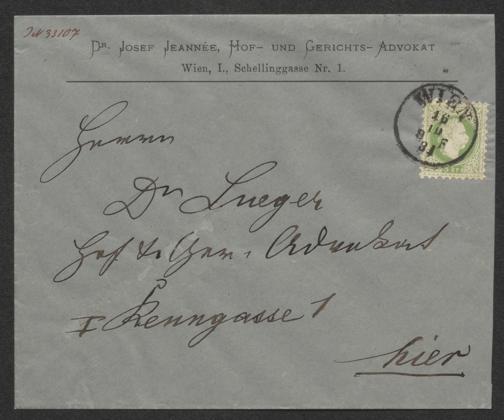 IN 33107
Dr. Josef Jeannée, Hof- und Gerichts-Advokat
Wien, I., Schellinggasse Nr. 1.
WIEN
Herrn
Dr Lueger
Hof & Ger. Advokat
I Renngasse 1
hier